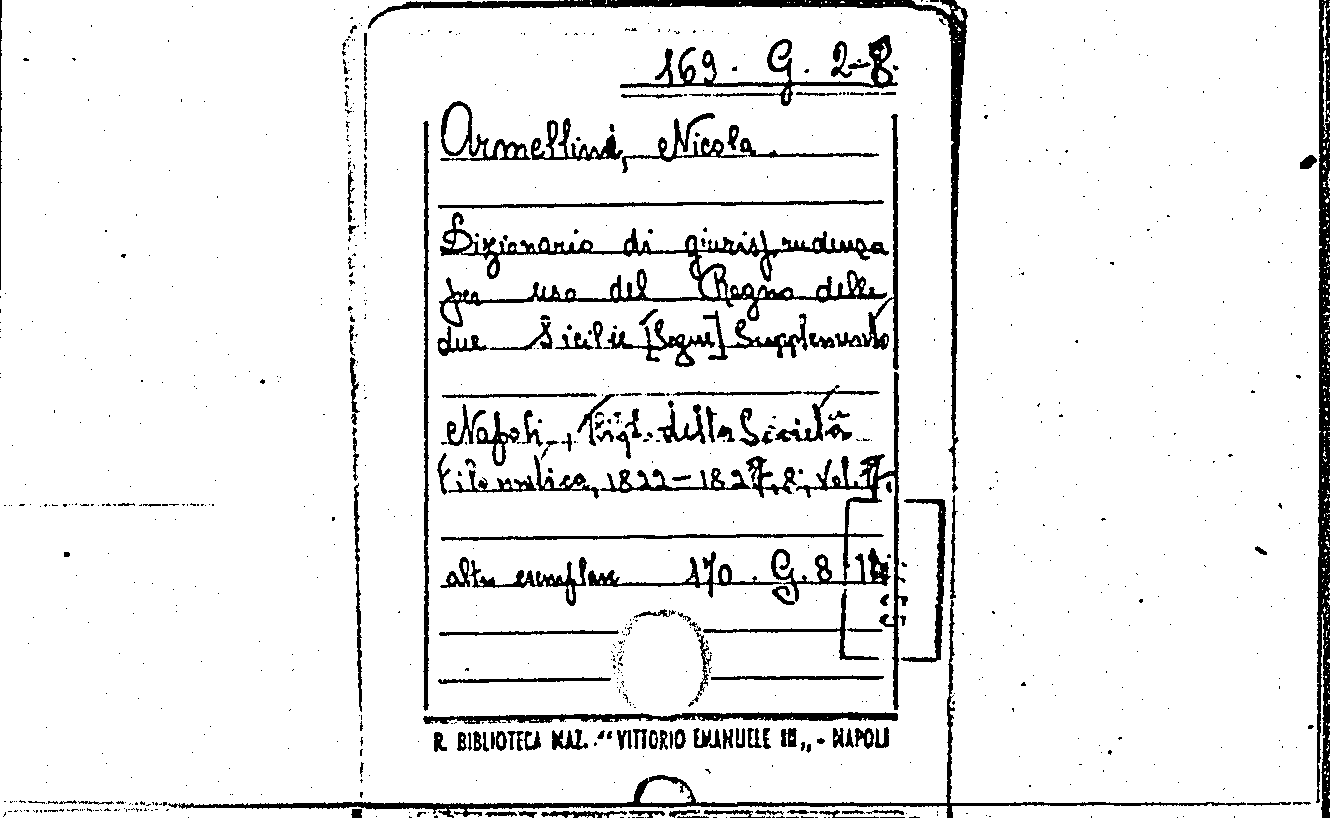 169. G. 2-8.
Armellini, Nicola.
Dizionario di giurisprudenza
per uso del Regno delle
due Sicilie [Segue] Supplemento
Napoli, Tigr. della Società
Filomatica, 1822-1827, 8°, Vol. 7.
altro esemplare 170. G. 8
R. BIBLIOTECA NAZ. "VITTORIO EMANUELE III" - NAPOLI